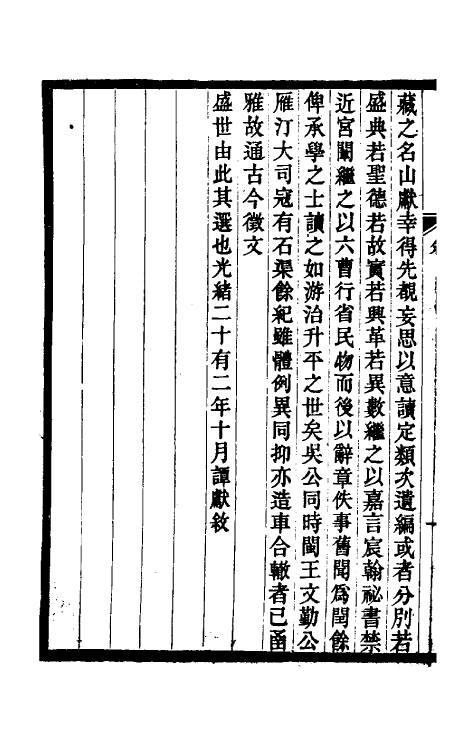 藏之名山獻幸得先覩妄思以意讀定類次遺編或者分別若
盛典若聖德若故實若興革若異數繼之以嘉言宸翰祕書禁
近宮闈繼之以六曹行省民物而後以辭章佚事舊聞爲閏餘
俾承學之士讀之如游治升平之世矣吳公同時閩王文勤公
雁汀大司寇有石渠餘紀雖體例異同抑亦造車合轍者已函
雅故通古今徵文
盛世由此其選也光緒二十有二年十月譚獻敘